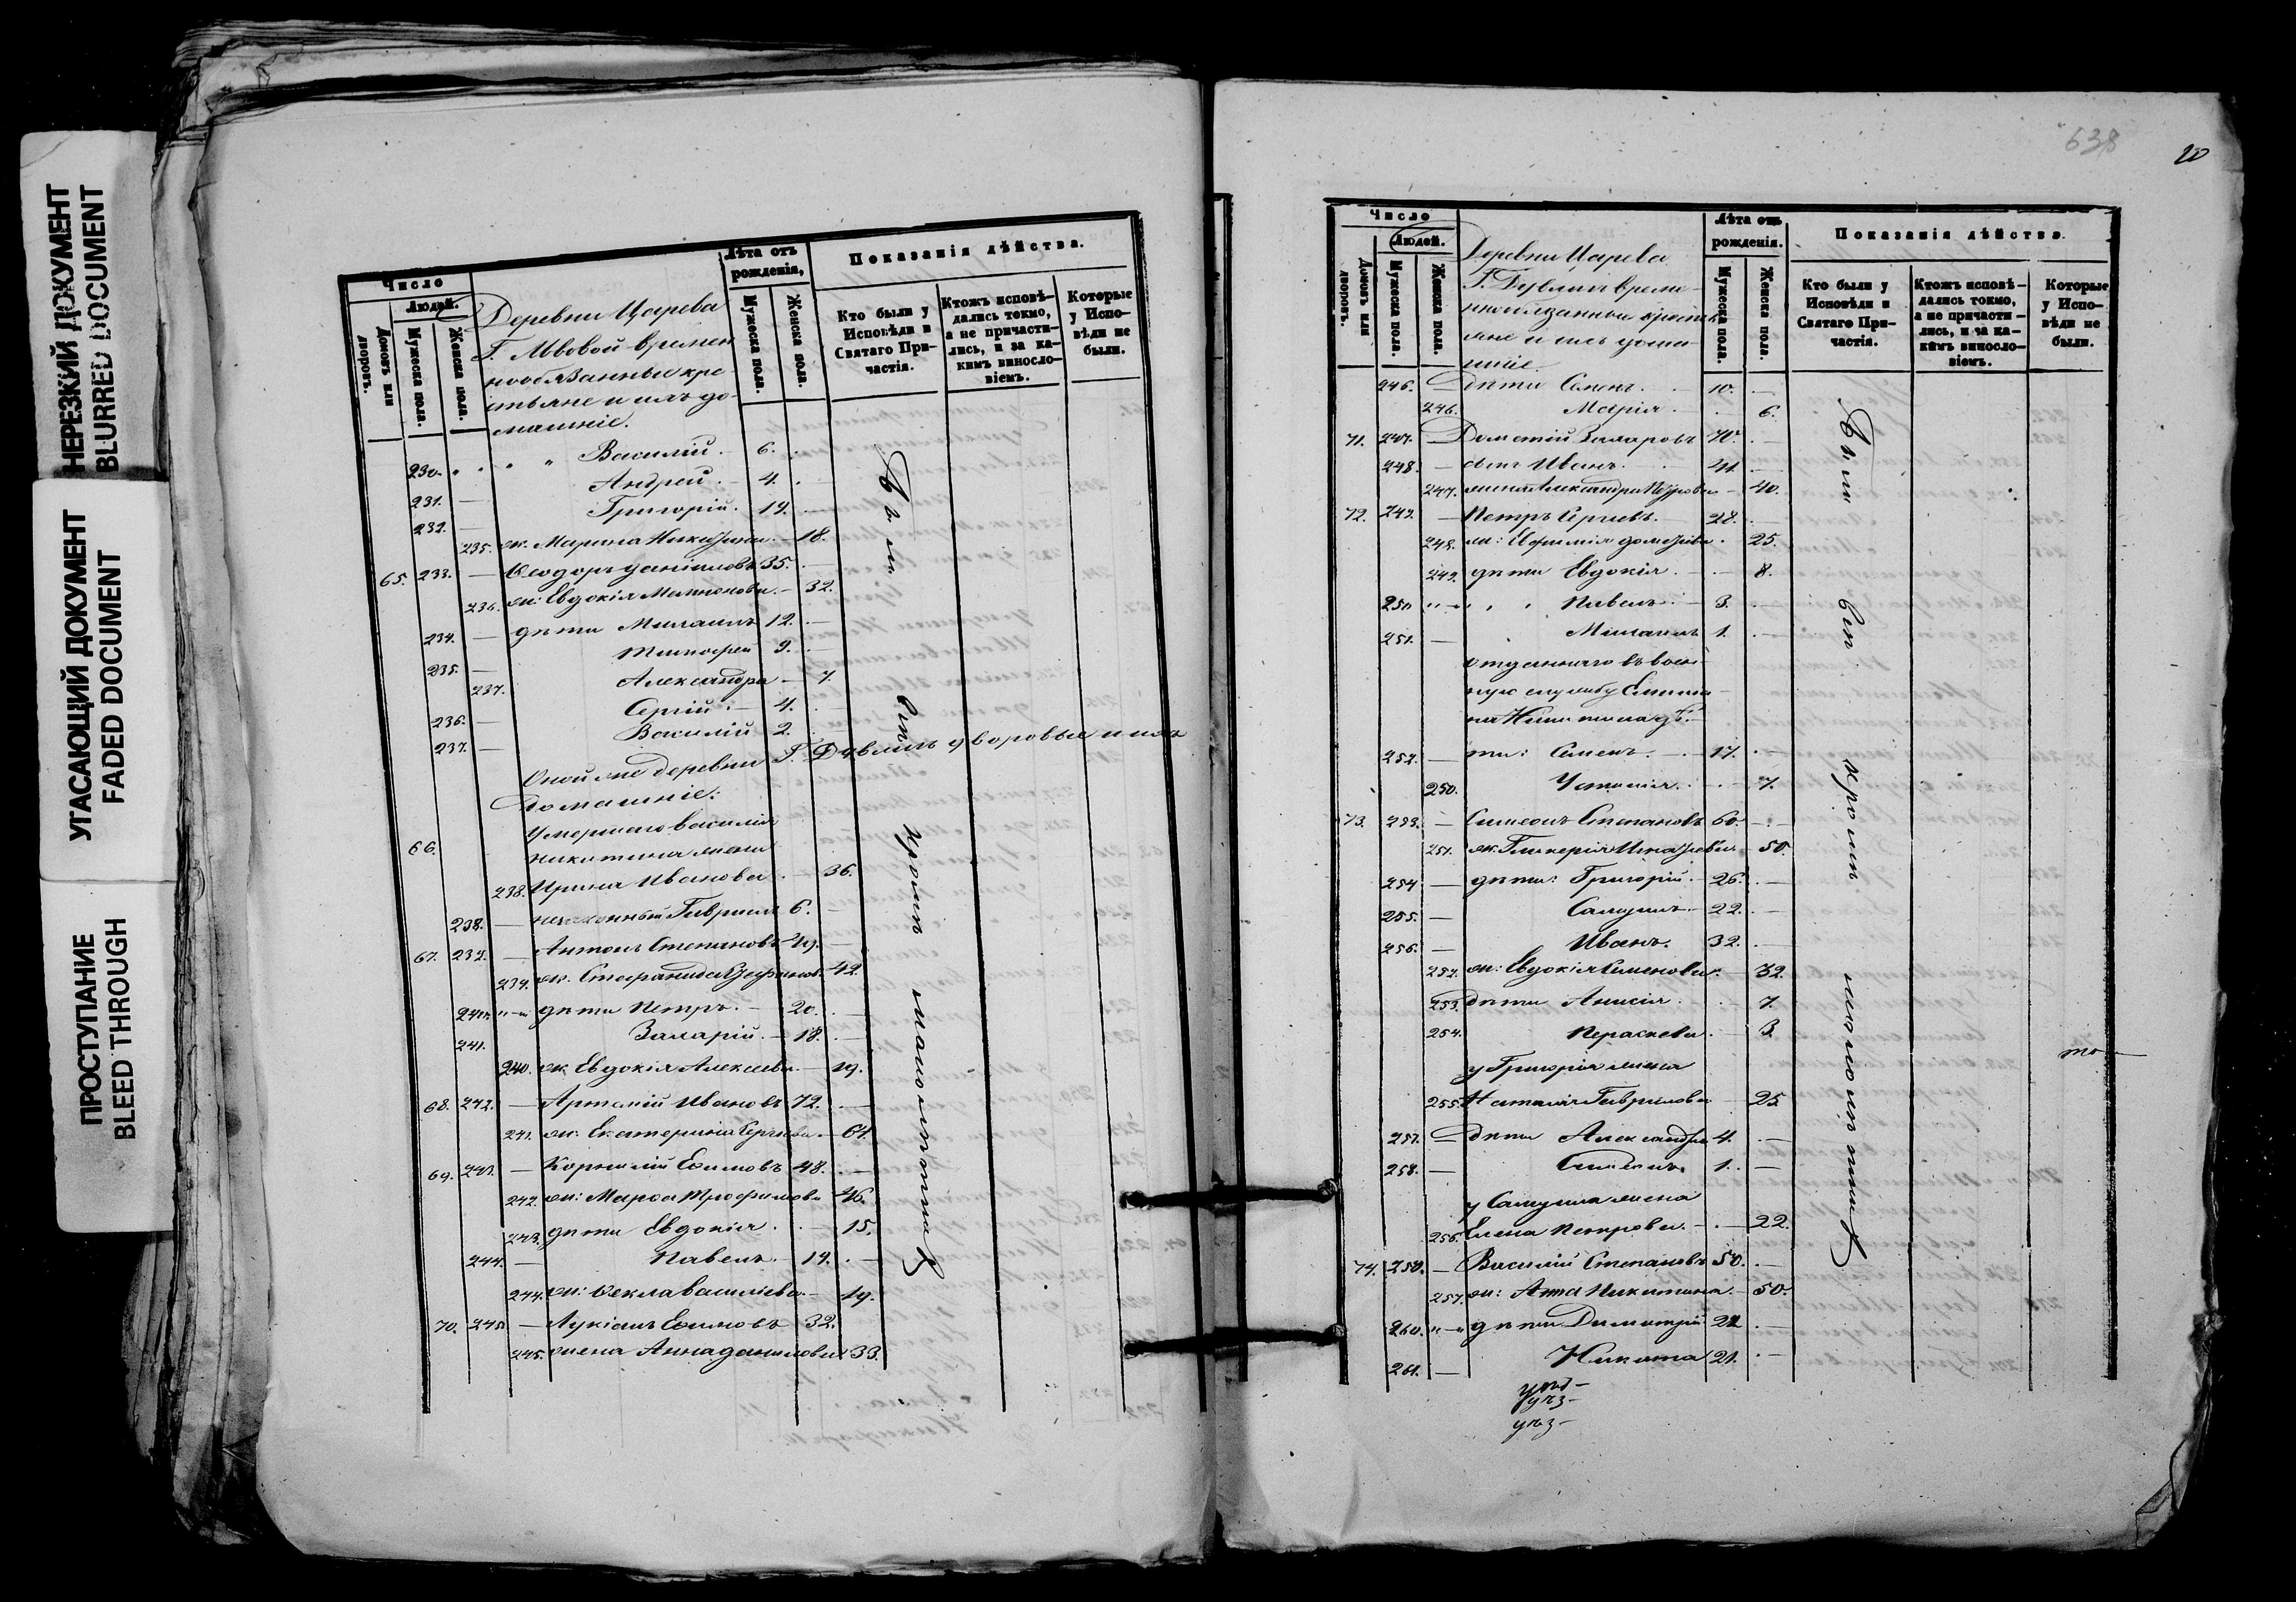 НЕРЕЗКИЙ ДОКУМЕНТ
BLURRED DOCUMENT
УГАСАЮЩИЙ ДОКУМЕНТ
FADED DOCUMENT
ПРОСТУПАНИЕ
BLEED THROUGH
Число
Людей.
Домовъ или дворовъ.
Мужеска пола.
Женска пола.
Деревни Царева
Г. Львовой времен
нообязанные кре
стьяне и ихъ до
машніе.
Лѣта отъ рожденія,
Мужеска пола.
Женска пола.
Показанія дѣйства.
Кто были у Исповѣди и Святаго Причастія.
Ктожъ исповѣдались токмо, а не причастились, и за какимъ винословіемъ.
Которые у Исповѣди не были.
230. Василій 6.
231. Андрей 4.
232. Григорій. 19.
235. ж. Марина 18.
65. 233. Ѳеодоръ Даниловъ 35.
236. ж: Евдокія 32.
234. дѣти Михаилъ 12.
235. Тимофей 9.
237. Александра 7.
236. Сергій 4.
237. Василій 2.
Оной же деревни Г. дворовые и ихъ
домашніе.
66. Умершаго Василія
Никитина жена
238. Ирина Иванова 36.
238. незаконный Гавріилъ 6.
67. 239. Антонъ Степановъ 49.
239. ж. Стефанида 42.
240. дѣти Петръ. 20.
241. Захарій. 18.
240. ж. Евдокія Алексеева 19.
68. 242. Артемій Ивановъ 72.
241. ж: Екатерина 61.
69. 243. Корнилій Ефимовъ 48.
242. ж: Марѳа Трофимова 46.
243. дѣти Евдокія 15.
244. Павелъ 19.
244. ж: Ѳекла Василіева 19.
70. 245. Лукіанъ Ефимовъ 32.
245. жена Анна Данилова 33.
Были вси кромѣ малолѣтнихъ
638
Число
Людей.
Домовъ или дворовъ.
Мужеска пола.
Женска пола.
Деревни Царева
Г. времен
нообязанные кресть
яне и ихъ дома
шніе.
Лѣта отъ рожденія.
Мужеска пола.
Женска пола.
Показанія дѣйства.
Кто были у Исповѣди и Святаго Причастія.
Ктожъ исповѣдались токмо, а не причастились, и за какимъ винословіемъ.
Которые у Исповѣди не были.
246. Дѣти Семенъ 10.
246. Марія 6.
71. 247. Дометій Захаровъ 70.
248. сынъ Иванъ 41.
247. жена Александра Петрова 40.
72. 249. Петръ 28.
248. ж: Ефимія 25.
249. дѣти Евдокія 8.
250. Павелъ 3.
251. Михаилъ 1.
отданнаго въ воен
ную службу
Никитина дѣ
252. ти: Семенъ 17.
250. Устинія 7.
73. 253. Симеонъ Степановъ 60.
251. ж. Гликерія 50.
254. дѣти: Григорій 26.
255. Самуилъ 22.
256. Иванъ 32.
252. ж: Евдокія Семенова 32.
253. дѣти Анисія 7.
254. Параскева 3.
у Григорія жена
255. Наталія Гаврилова 25
257. дѣти Александръ 4.
258. Симеонъ 1.
у Самуила жена
256. Елена Петрова 22.
74. 259. Василій Степановъ 50.
257. ж: Анна Никитина 50.
260. дѣти Димитрій 22
261. Никита 21.
Были вси кромѣ малолѣтнихъ